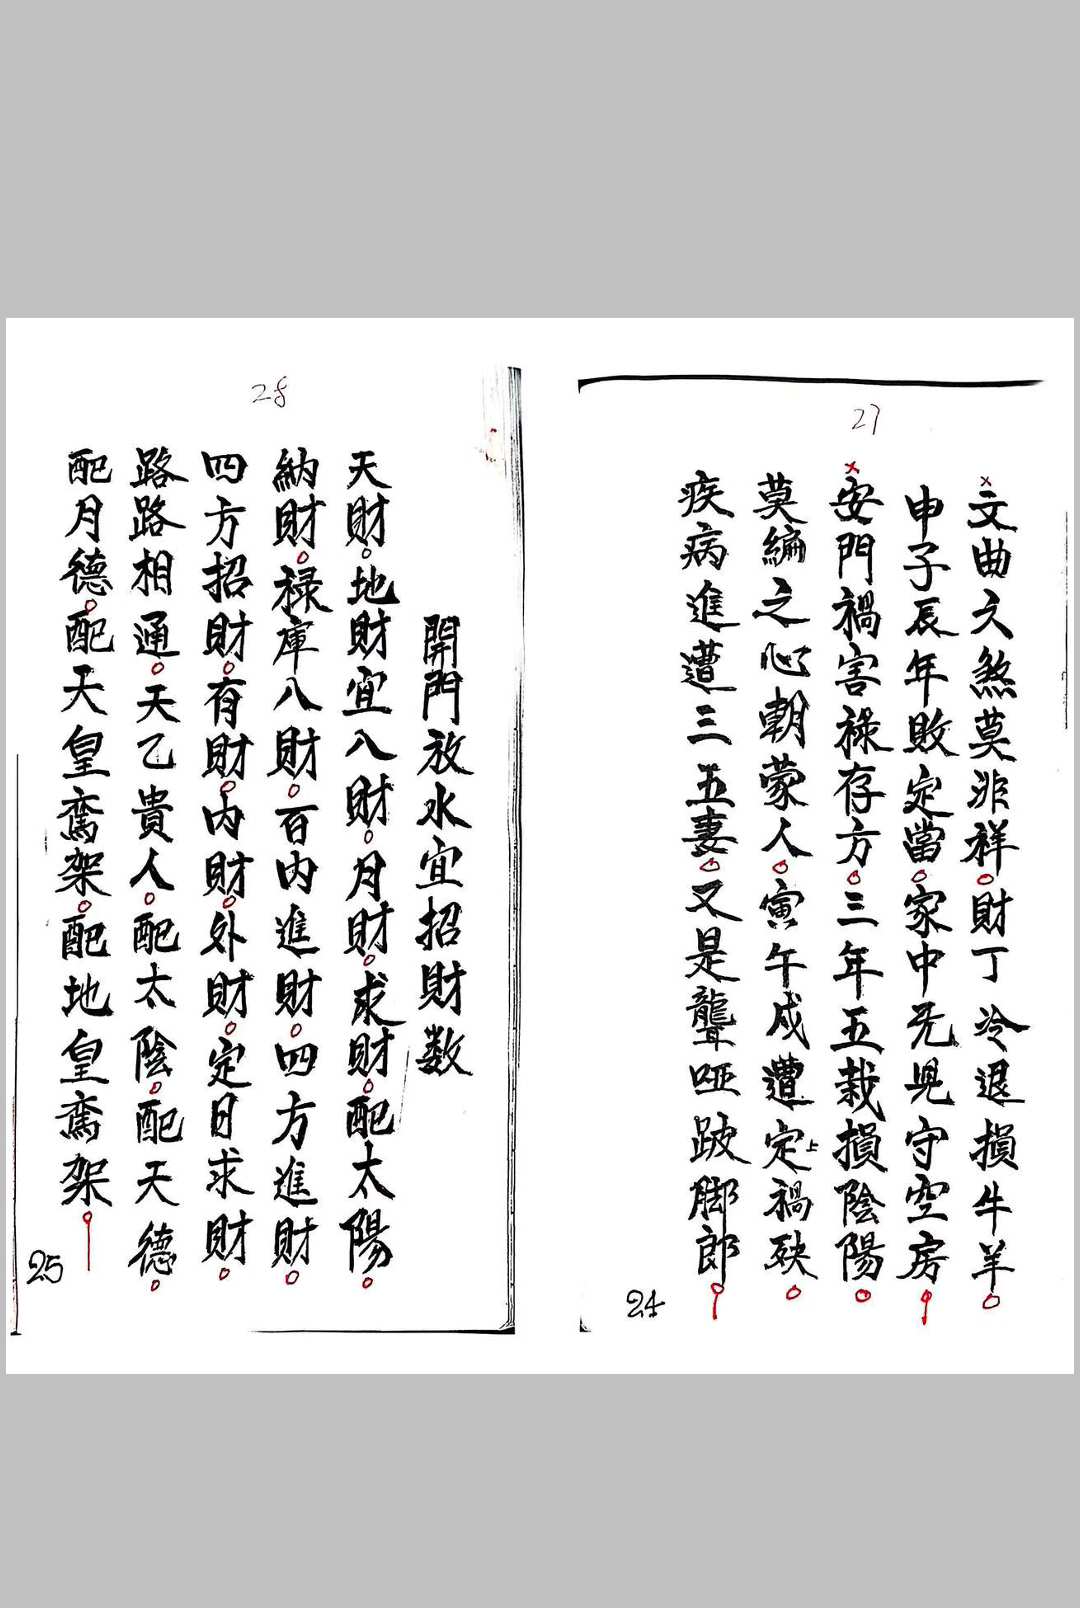 27
文曲文煞莫非祥。財丁冷退損牛羊。
申子辰年敗定當。家中无児守空房。
安門禍害禄存方。三年五栽損陰陽。
莫編之心朝蒙人。寅午戌遭定上禍殃。
疾病進遭三五妻。又是聾啞跛脚郎。
24
28
開門放水宜招財数
天財。地財宜八財。月財。求財。配太陽。
納財。禄庫八財。百内進財。四方進財。
四方招財。有財。内財。外財。定日求財。
路路相通。天乙貴人。配太陰。配天德。
配月德。配天皇鸾架。配地皇鸾架。
25